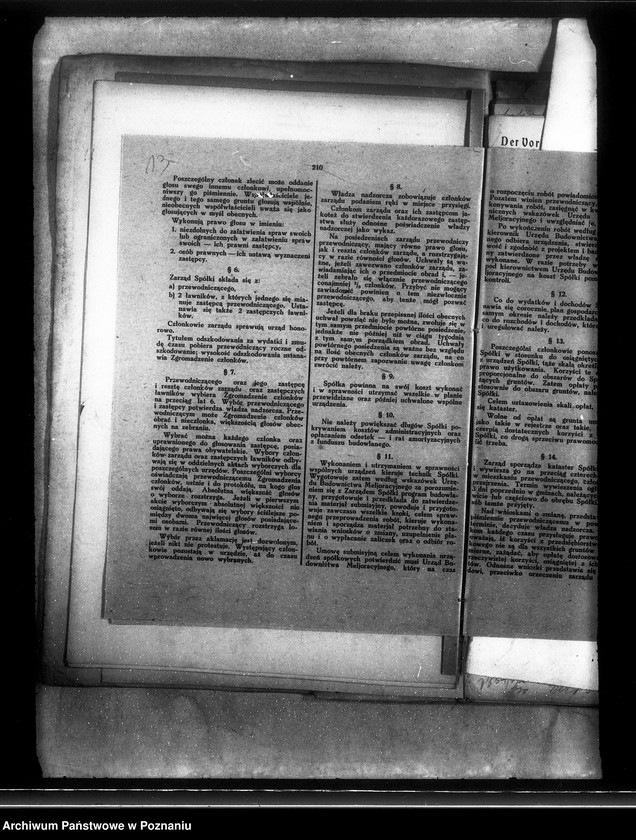 Der Vor
135
210
Poszczególny członek zlecić może oddanie
głosu swego innemu członkowi, upełnomoc-
niwszy go piśmiennie. Współwłaściciele je-
dnego i tego samego gruntu głosują wspólnie,
nieobecnych współwłaścicieli uważa się jako
głosujących w myśl obecnych.
Wykonują prawo głosu w imieniu:
1. niezdolnych do załatwienia spraw swoich
lub ograniczonych w załatwieniu spraw
swoich — ich prawni zastępcy,
2. osób prawnych — ich ustawą wyznaczeni
zastępcy.
§ 6.
Zarząd Spółki składa się z:
a) przewodniczącego,
b) 2 ławników, z których jednego się mia-
nuje zastępcą przewodniczącego. Usta-
nawia się także 2 zastępczych ławni-
ków.
Członkowie zarządu sprawują urząd hono-
rowo.
Tytułem odszkodowania za wydatki i zmu-
dę czasu pobiera przewodniczący roczne od-
szkodowanie; wysokość odszkodowania ustana-
wia Zgromadzenie członków.
§ 7.
Przewodniczącego oraz jego zastępcę
i resztę członków zarządu oraz zastępczych
ławników wybiera Zgromadzenie członków
na przeciąg lat 6. Wybór przewodniczącego
i zastępcy potwierdza władza nadzorcza. Prze-
wodniczącym może Zgromadzenie członków
obrać i nieczłonka, większością głosów obec-
nych na zebraniu.
Wybrać można każdego członka oraz
uprawnionego do głosowania zastępcę, posia-
dającego prawa obywatelskie. Wybory człon-
ków zarządu oraz zastępczych ławników odby-
wają się w oddzielnych aktach wyborczych dla
poszczególnych urzędów. Poszczególni wyborcy
oświadczają przewodniczącemu Zgromadzenia
członków, ustnie i do protokółu, na kogo głos
swój oddają. Absolutna większość głosów
o wyborze rozstrzyga. Jeżeli w pierwszym
akcie wyborczym absolutnej większości nie
osiągnięto, odbywają się wybory ściślejsze po-
między dwoma najwięcej głosów posiadające-
mi osobami. Przewodniczący rozstrzyga lo-
sem w razie równości głosów.
Wybór przez aklamację jest dozwolonym,
jeżeli nikt nie protestuje. Występujący człon-
kowie pozostają w urzędzie, aż do czasu
wprowadzenia nowo wybranych.
§ 8.
Władza nadzorcza zobowiązuje członków
zarządu podaniem ręki w miejsce przysięgi.
Członkom zarządu oraz ich zastępcom ja-
koteż do stwierdzenia każdorazowego zastęp-
stwa służy odnośne poświadczenie władzy
nadzorczej jako wykaz.
Na posiedzeniach zarządu przewodniczy
przewodniczący, mający równe prawo głosu,
jak i reszta członków zarządu, a rozstrzygają-
cy w razie równości głosów. Uchwały są wa-
żne, jeżeli zawezwano członków zarządu, za-
wiadamiając ich o przedmiocie obrad i, — je-
żeli zebrało się włącznie przewodniczącego
conajmniej ²/₃ członków. Przybyć nie mogący
zawiadomić powinien o tem niezwłocznie
przewodniczącego, aby tenże mógł pozwać
zastępcę.
Jeżeli dla braku przepisanej ilości obecnych
uchwał powziąć nie było można, zwołuje się w
tym samym przedmiocie powtórne posiedzenie,
jednakże nie później niż w ciągu tygodnia
z tym samym porządkiem obrad. Uchwały
powtórnego posiedzenia są ważne bez względu
na ilość obecnych członków zarządu, na co
przy powtórnem zapozwaniu uwagę członkom
zwrócić należy.
§ 9.
Spółka powinna na swój koszt wykonać
i w sprawności utrzymać wszelkie w planie
przewidziane oraz później uchwalone wspólne
urządzenia.
§ 10.
Nie należy powiększać długów Spółki po-
krywaniem kosztów administracyjnych oraz
opłacaniem odsetek — i rat amortyzacyjnych
z funduszu budowlanego.
§ 11.
Wykonaniem i utrzymaniem w sprawności
wspólnych urządzeń kieruje technik Spółki.
Wygotowuje zatem według wskazówek Urzę-
du Budownictwa Meljoracyjnego za porozumie-
niem się z Zarządem Spółki program budowla-
ny, przygotowuje i przedkłada do zatwierdze-
nia materjał submisyjny, powoduje i przygoto-
wuje zawczasu wszystkie kroki, celem spraw-
nego przeprowadzenia robót, kieruje wykona-
niem i sporządza materjał potrzebny do sta-
wiania wniosków o zmiany, uzupełnienie pla-
nu i o wypłacanie zaliczek oraz o odbiór ro-
bót.
Umowę submisyjną celem wykonania urzę-
dzeń spółkowych potwierdzić musi Urząd Bu-
downictwa Meljoracyjnego, który na czas
o rozpoczęciu robót powiadomiony
Pozatem winien przewodniczący,
konywał robót, zasięgnąć w ka
nicznych wskazówek Urzędu
Meljoracyjnego i uwzględnić je.
Po wykonaniu robót według
kierownik Urzędu Budownictwa
nego odbiera urządzenia, stwier
wość i zgodność z projektem i ba
są zatwierdzone przez władzę
wykonane. W razie potrzeby
pod kierownictwem Urzędu Budo
ljoracyjnego na koszt Spółki pom
kontroli.
§ 12.
Co do wydatków i dochodów
nawia się corocznie plan gospodar
samym okresie należy przedkłada
co do rozchodu i dochodów, które
i uregulować należy.
§ 13.
Poszczególni członkowie ponosz
Spółki w stosunku do osiągniętyc
urządzeń Spółki, tąże skalą określ
prawo użytkowania. Korzyści te
proporcjonalne do obszarów do Sp
żących gruntów. Zatem opłaty
stosować do obszaru gruntów, nal
Spółki.
Celem ustanowienia skali opłat,
się kataster.
Wolne od opłat są grunta u
jako takie w rejestrze oraz takie
czerpią dostatecznych korzyści z
Spółki, co drogą sprzeciwu prawomoc
nić trzeba.
§ 14.
Zarząd sporządza kataster Spółki
i wywiesza go na przeciąg czterech
w mieszkaniu przewodniczącego, człon
do wejrzenia. Termin wywieszenia ogł
być poprzednio w gminach, należących
wicie lub częściowo do obrębu Spółki,
w tamże przyjęty.
Nad wnioskami o zmianę, przedsta
śmiennie przewodniczącemu w powy
terminie, decyduje władza nadzorcza
każdego czasu przysługuje prawo
wania, iż korzyści z przedsiębiorstwa
lowego nie są dla wszystkich gruntów
mierne, żądając, aby opłatę dostosow
rzeczywistej korzyści, osiągniętej z ich
tów. Odnośne wnioski przedstawia się
dowi, przeciwko orzeczeniu zarządu
Archiwum Państwowe w Poznaniu